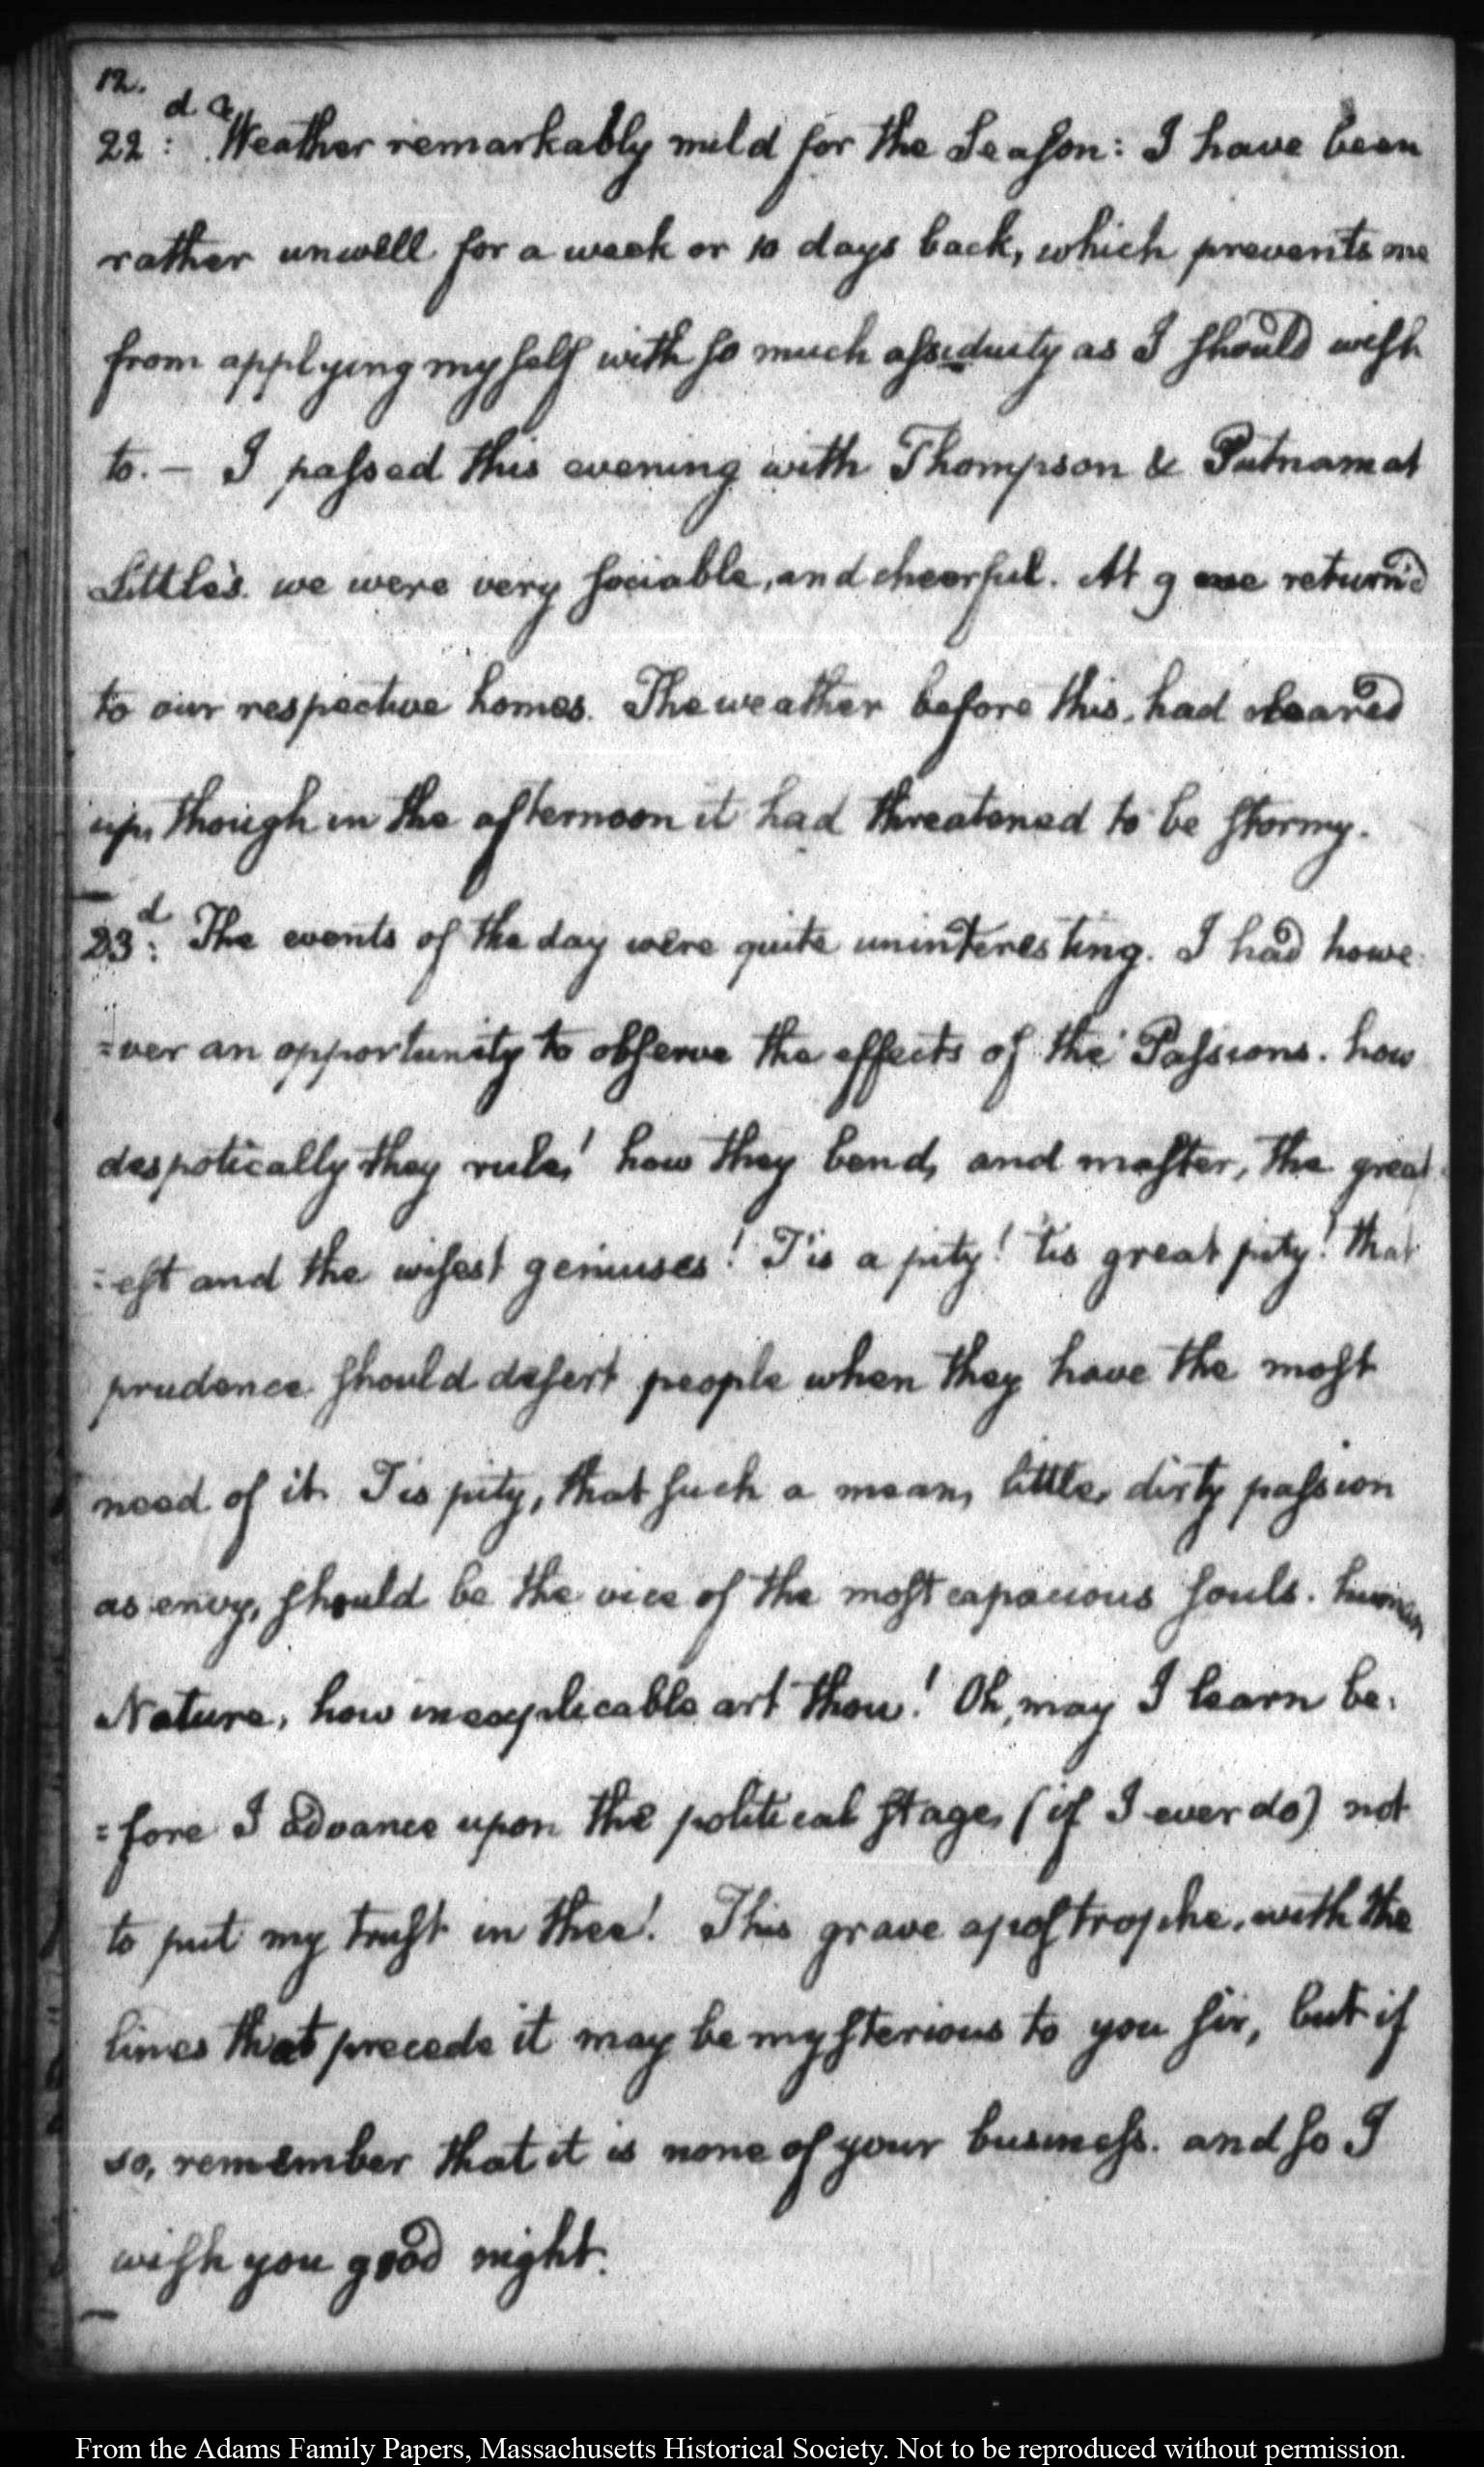 12.
22:d Weather remarkably mild for the Season: I have been
rather unwell for a week or 10 days back, which prevents me
from applying myself with so much assiduity as I should wish
to. — I passed this evening with Thompson & Putnam at
Little's. we were very sociable, and cheerful. At 9 we return'd
to our respective homes. The weather before this, had cleared
up, though in the afternoon it had threatened to be stormy.
23:d The events of the day were quite uninteresting. I had howe
=ver an opportunity to observe the effects of the Passions. how
despotically they rule! how they bend, and master, the great
=est and the wisest geniuses! T'is a pity! tis great pity! that
prudence should desert people when they have the most
need of it. Tis pity, that such a mean, little, dirty passion
as envy, should be the vice of the most capacious souls. human
Nature, how inexplicable art thou! Oh, may I learn be-
=fore I advance upon the political stage, (if I ever do) not
to put my trust in thee! This grave apostrophe, with the
lines that precede it may be mysterious to you sir, but if
so, remember that it is none of your business. and so I
wish you good night.
From the Adams Family Papers, Massachusetts Historical Society. Not to be reproduced without permission.